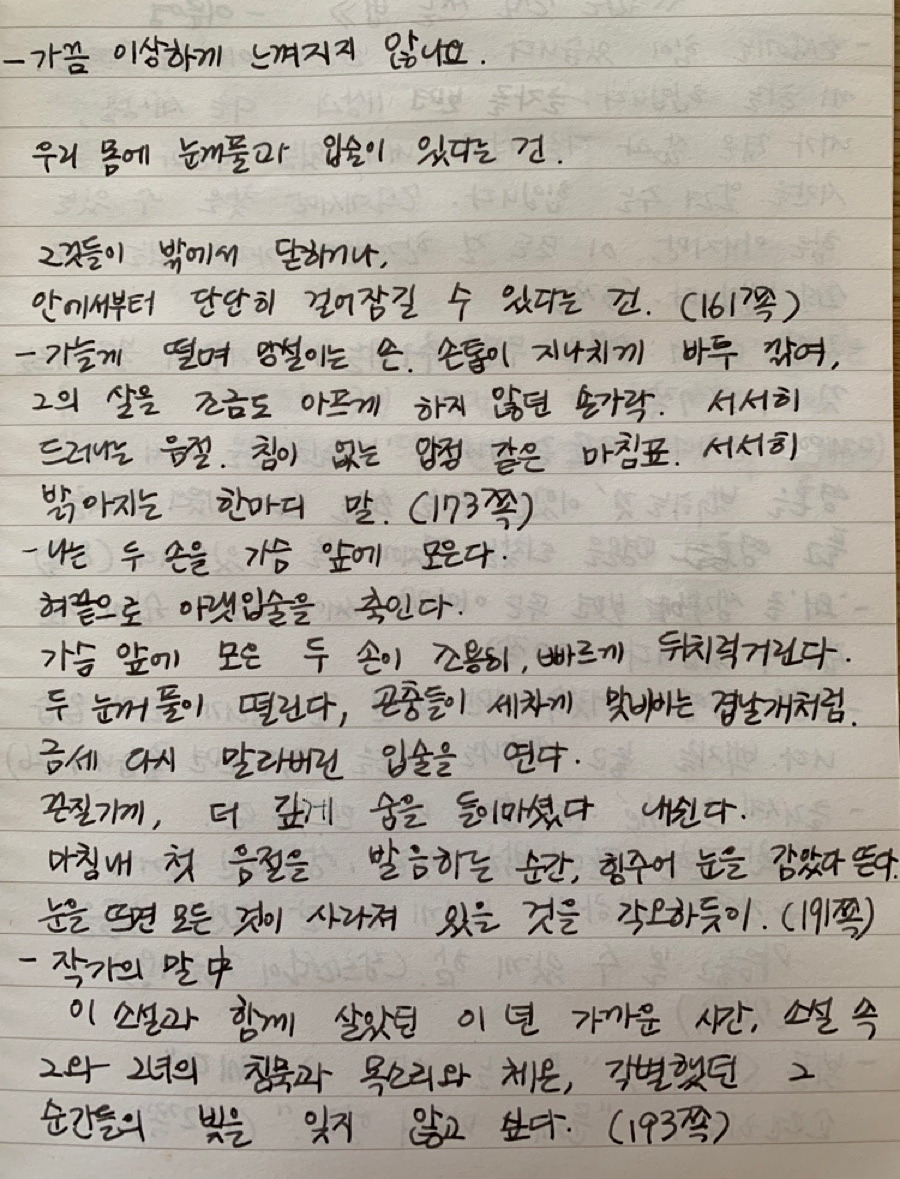 - 가끔 이상하게 느껴지지 않나요.
우리 몸에 눈꺼풀과 입술이 있다는 건.
그것들이 밖에서 닫히거나,
안에서부터 단단히 걸어잠길 수 있다는 건. (161쪽)
- 가늘게 떨며 망설이는 손. 손톱이 지나치게 바투 깎여,
그의 살을 조금도 아프게 하지 않던 손가락. 서서히
드러나는 음절. 침이 없는 압정 같은 마침표. 서서히
밝아지는 한마디 말. (173쪽)
- 나는 두 손을 가슴 앞에 모은다.
혀끝으로 아랫입술을 축인다.
가슴 앞에 모은 두 손이 조용히, 빠르게 뒤치럭거린다.
두 눈꺼풀이 떨린다, 곤충들이 세차게 맞비비는 겹날개처럼.
금세 다시 말라버린 입술을 연다.
끈질기게, 더 깊게 숨을 들이마셨다 내쉰다.
마침내 첫 음절을 발음하는 순간, 힘주어 눈을 감았다 뜬다.
눈을 뜨면 모든 것이 사라져 있을 것을 각오하듯이. (191쪽)
- 작가의 말 中
이 소설과 함께 살았던 이 년 가까운 시간, 소설 속
그와 그녀의 침묵과 목소리와 체온, 각별했던 그
순간들의 빛을 잊지 않고 싶다. (193쪽)